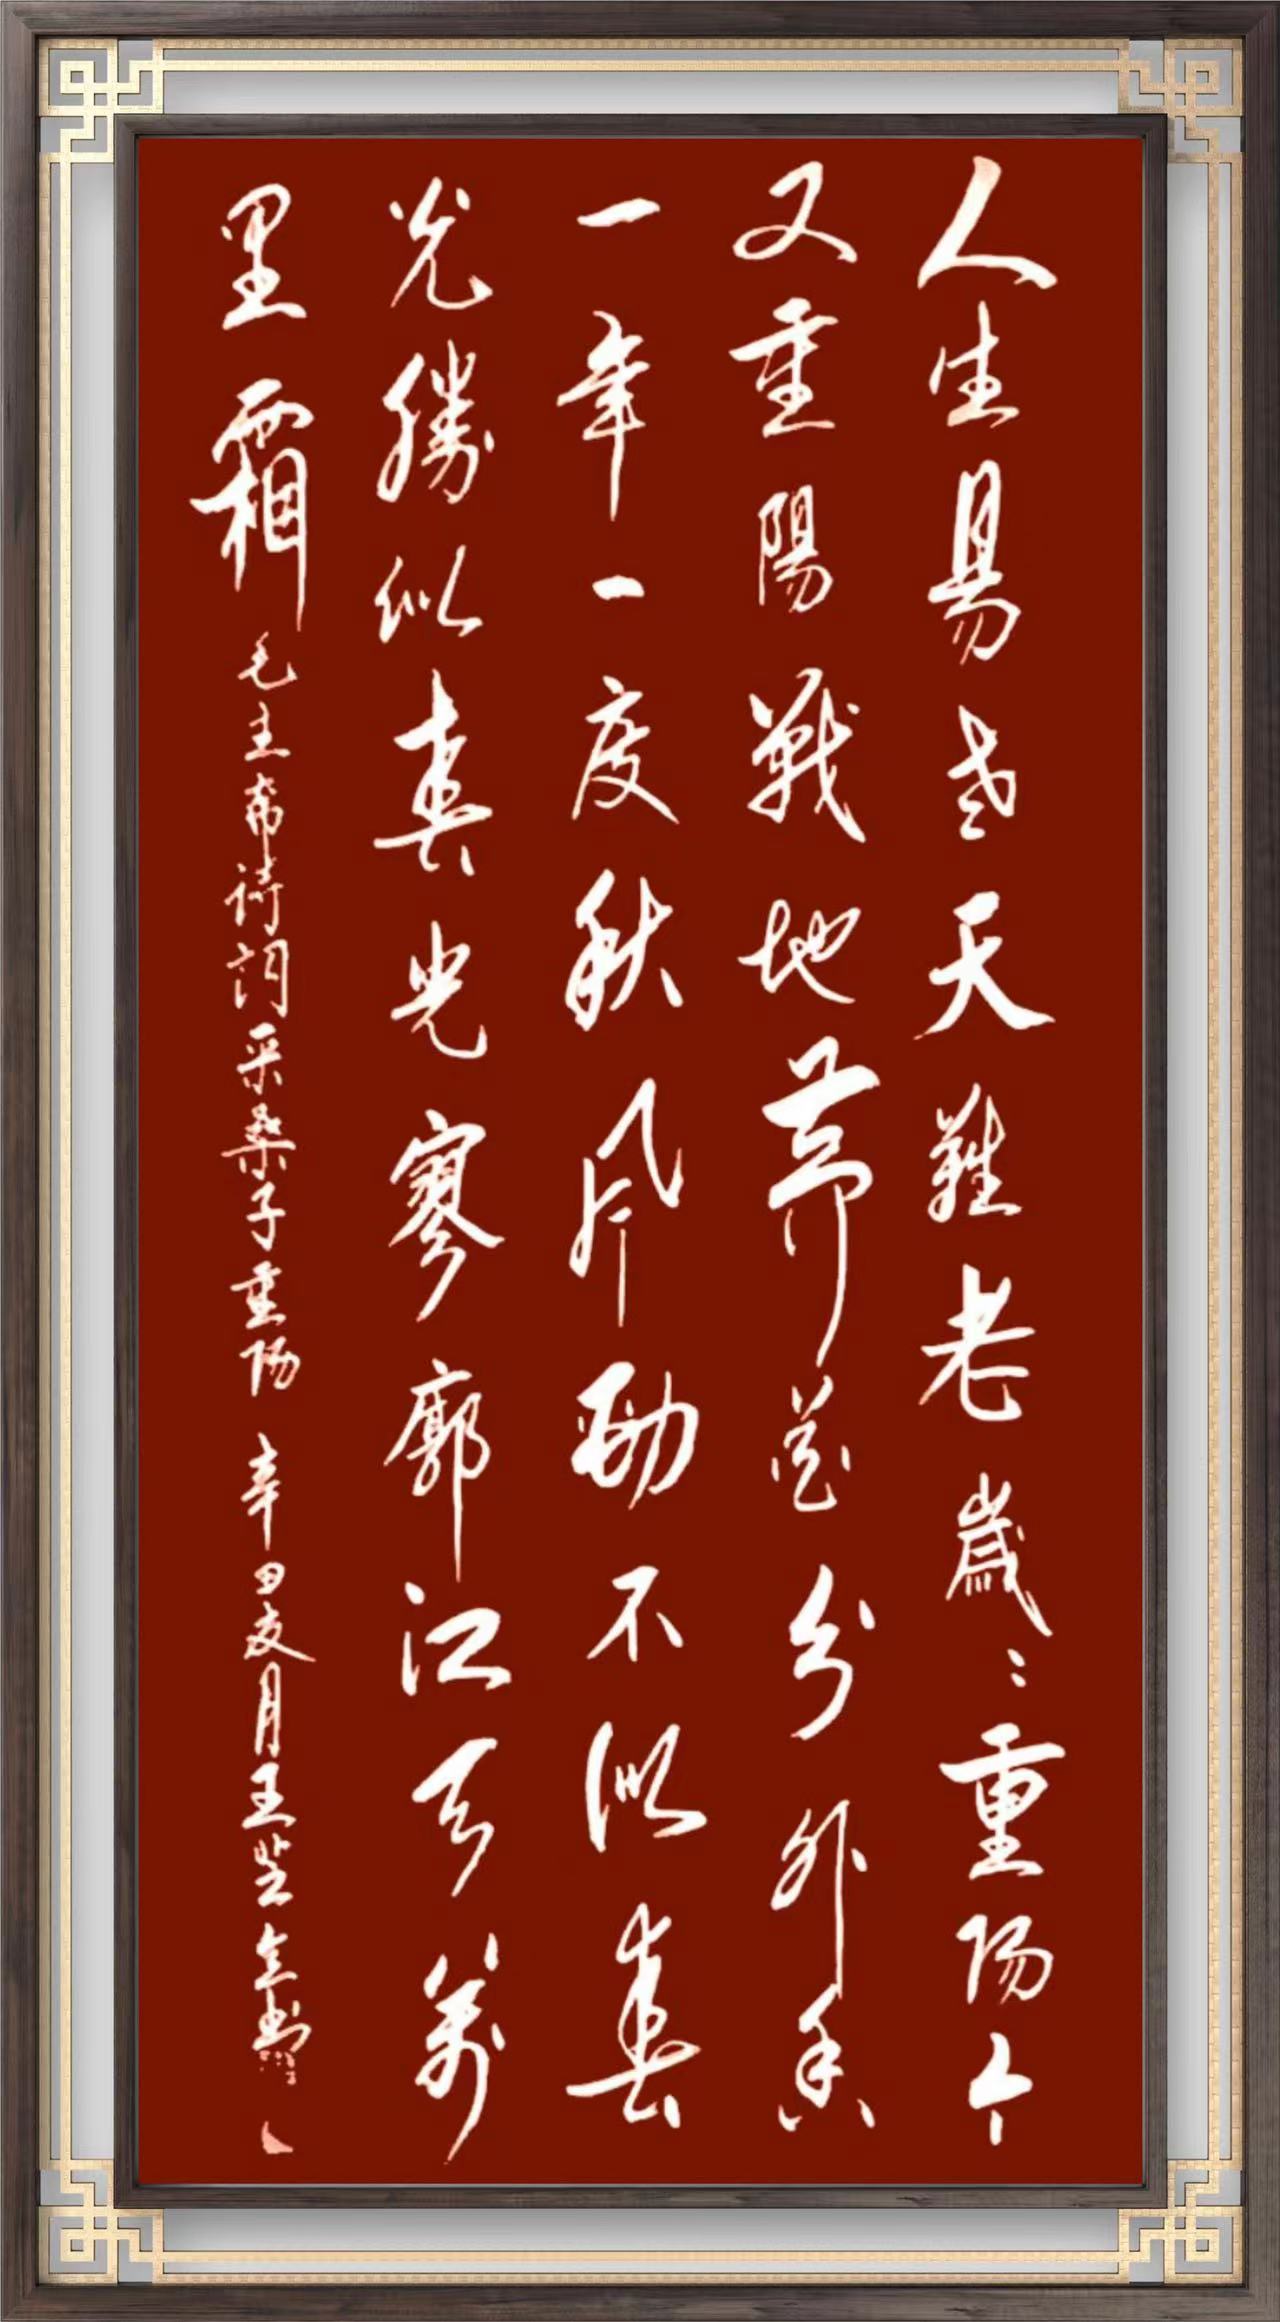 人生易老天難老歲〻重阳今
又重陽戰地黄花分外香
一年一度秋風勁不似春
光勝似春光寥廓江天萬
里霜 毛主席诗词采桑子重阳 辛丑夏月王芝书